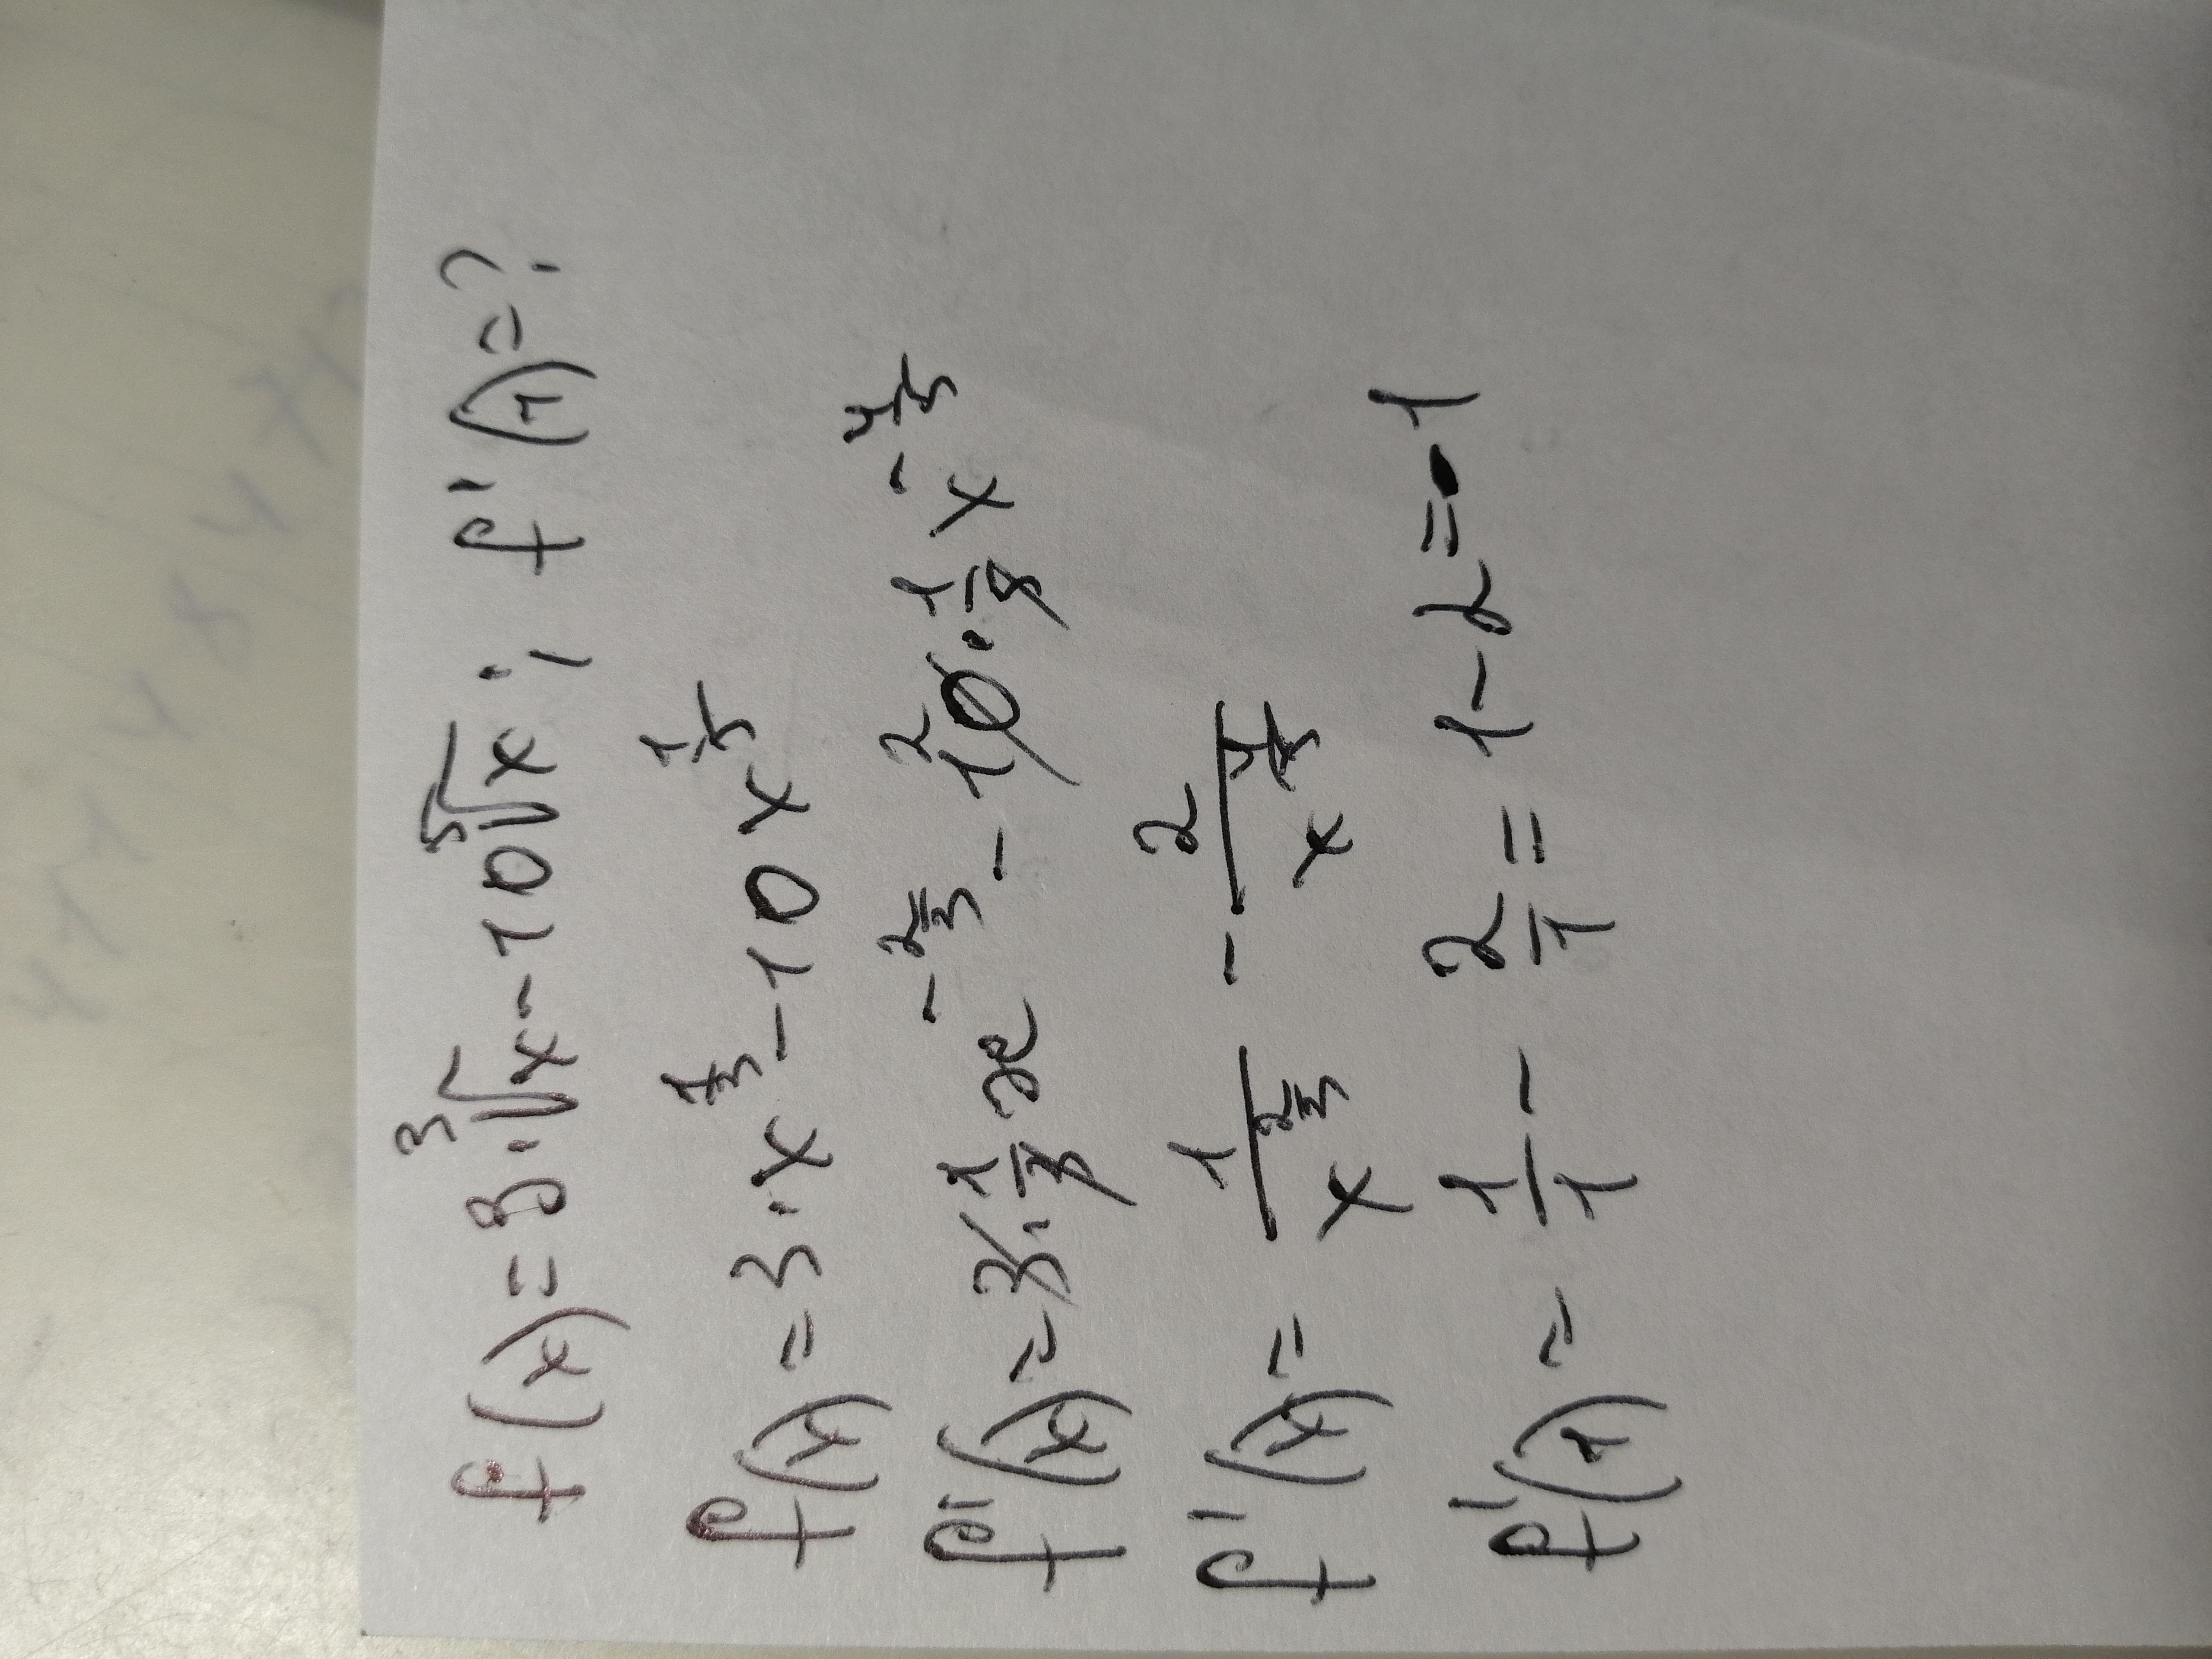 f(x) = 3·∛x - 10⁵√x ; f'(1) = ?
f(x) = 3·x^(1/3) - 10x^(1/5)
f'(x) = 3·1/3 x^(-2/3) - 10·1/5 x^(-4/5)
f'(x) = 1/x^(2/3) - 2/x^(4/5)
f'(1) = 1/1 - 2/1 = 1-2=-1